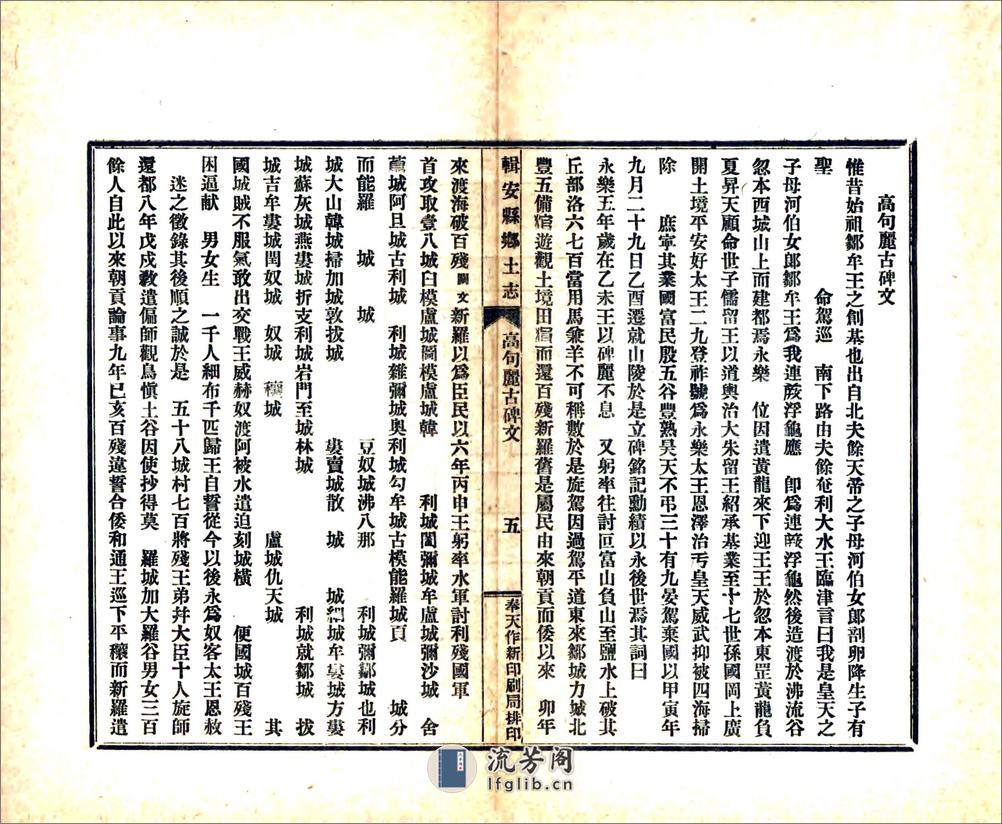 高句麗古碑文
惟昔始祖鄒牟王之創基也出自北夫餘天帝之子母河伯女郎剖卵降生子有
聖　命駕巡　南下路由夫餘奄利大水王臨津言曰我是皇天之
子母河伯女郎鄒牟王爲我連葭浮龜應　卽爲連葭浮龜然後造渡於沸流谷
忽本西城山上而建都焉永樂　位因遣黃龍來下迎王王於忽本東罡黃龍負
夏昇天顧命世子儒留王以道輿治大朱留王紹承基業至十七世孫國岡上廣
開土境平安好太王二九登祚號爲永樂太王恩澤治丐皇天威武抑被四海掃
除　庶寧其業國富民殷五谷豐熟昊天不弔三十有九晏駕棄國以甲寅年
九月二十九日乙酉遷就山陵於是立碑銘記勳績以永後世焉其詞曰
永樂五年歲在乙未王以碑麗不息　又躬率往討叵富山負山至鹽水上破其
丘部洛六七百當用馬羣羊不可稱數於是旋駕因過駕平道東來鄒城力城北
豐五備　遊觀土境田　而還百殘新羅舊是屬民由來朝貢而倭以來　卯年
輯安縣鄉土志　高句麗古碑文　五　奉天作新印刷局排印
來渡海破百殘闕文新羅以爲臣民以六年丙申王躬率水軍討利殘國軍
首攻取壹八城臼模盧城圖模盧城韓　利城閣彌城牟盧城彌沙城　舍
蔫城阿旦城古利城　利城雜彌城奥利城勾牟城古模能羅城頁　城分
而能羅　城　城　豆奴城沸八那　利城彌鄒城也利
城大山韓城掃加城敦拔城　婁賣城散　城　城細城牟婁城方婁
城蘇灰城燕婁城折支利城岩門至城林城　利城就鄒城　拔
城吉牟婁城閏奴城　奴城　穰城　盧城仇天城　其
國城賊不服氣敢出交戰王威赫奴渡阿被水遣迫刻城橫　便國城百殘王
困逼献　男女生　一千人細布千匹歸王自誓從今以後永爲奴客太王恩赦
迷之徵錄其後順之誠於是　五十八城村七百將殘王弟幷大臣十人旋師
還都八年戊戌敎遣偏師觀鳥愼土谷因使抄得莫　羅城加大羅谷男女三百
餘人自此以來朝貢論事九年已亥百殘違誓合倭和通王巡下平穰而新羅遣
流芳阁
lfglib.cn